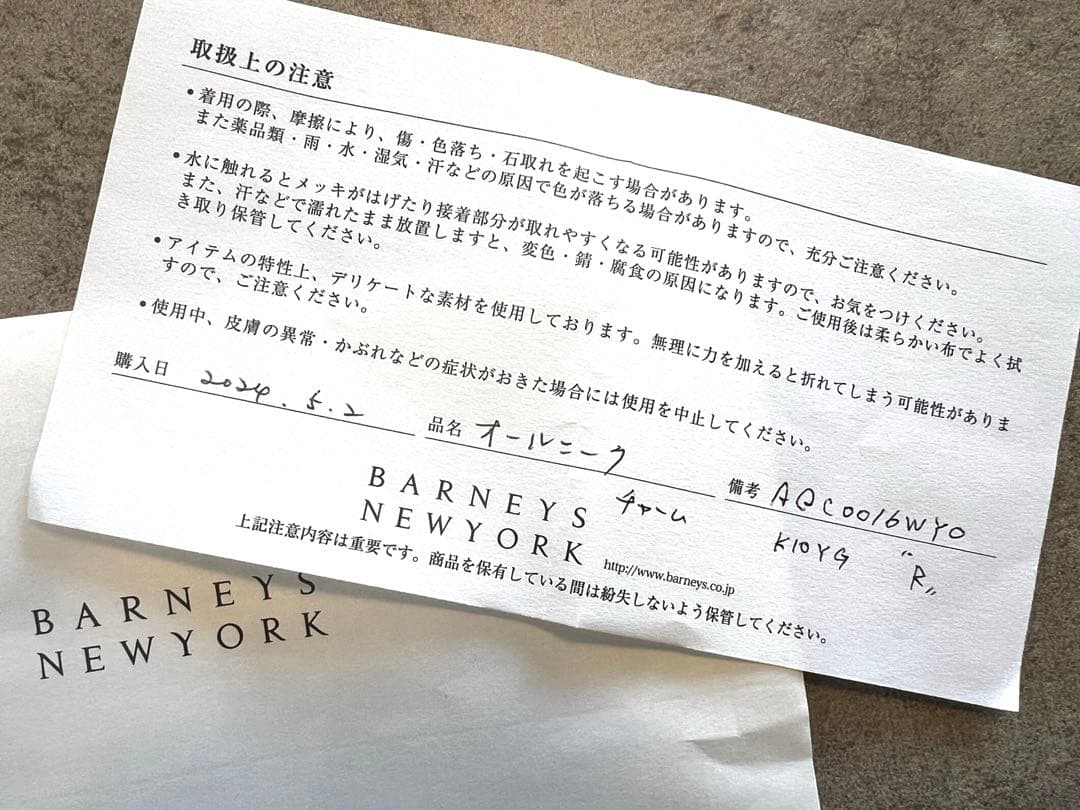 取扱上の注意
•着用の際、摩擦により、傷・色落ち・石取れを起こす場合があります。
また薬品類・雨・水・湿気・汗などの原因で色が落ちる場合がありますので、充分ご注意ください。
•水に触れるとメッキがはげたり接着部分が取れやすくなる可能性がありますので、お気をつけください。
また、汗などで濡れたまま放置しますと、変色・錆・腐食の原因になります。ご使用後は柔らかい布でよく拭
き取り保管してください。
•アイテムの特性上、デリケートな素材を使用しております。無理に力を加えると折れてしまう可能性がありま
すので、ご注意ください。
•使用中、皮膚の異常・かぶれなどの症状がおきた場合には使用を中止してください。
購入日 2024.5.2
品名 オールニーク
チャーム
備考 AQC0016WYO
K10YG "R"
BARNEYS
NEWYORK
http://www.barneys.co.jp
上記注意内容は重要です。商品を保有している間は紛失しないよう保管してください。
BARNEYS
NEWYORK